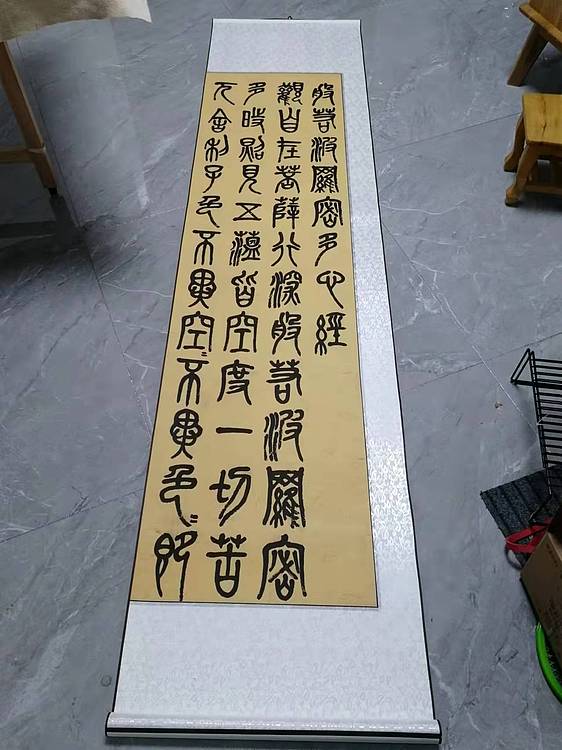 般若波羅密多心經
觀自在菩薩行深般若波羅密
多時照見五蘊皆空度一切苦
厄舍利子色不異空〻不異色〻即